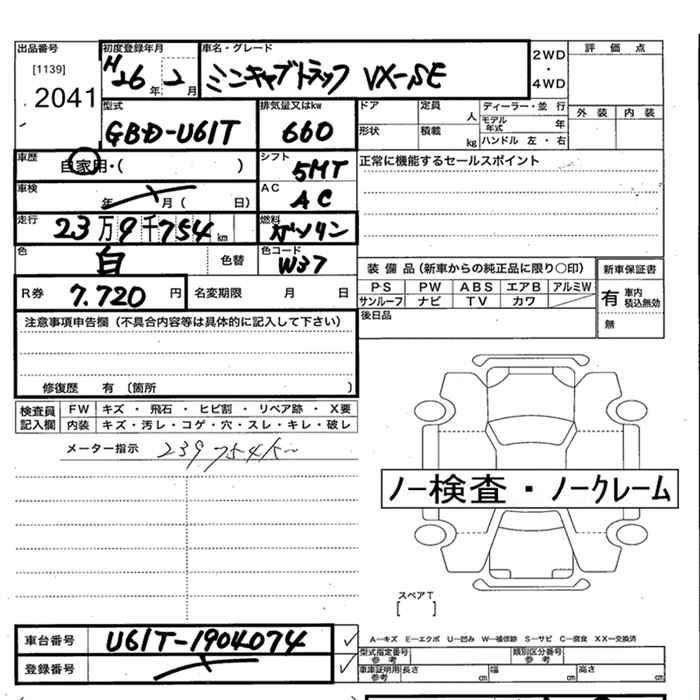 出品番号
[1139]
2041
初度登録年月
H26年2月
車名・グレード
ミニキャブトラック VX-SE
2WD
・
4WD
評価点
外装 内装
型式
GBD-U61T
排気量又はkw
660
ドア
定員 人
ディーラー・並行
モデル年式 年
形状
積載 kg
ハンドル 左・右
車歴
自家用・( )
シフト
5MT
正常に機能するセールスポイント
車検
年 月 ( 日)
AC
AC
走行
23万9千754km
燃料
ガソリン
色
白
色替
色コード
W37
装備品(新車からの純正品に限り〇印)
新車保証書
PS PW ABS エアB アルミW
サンルーフ ナビ TV カワ
有 車内積込無効
無
R券
7.720円
名変期限 月 日
後日品
注意事項申告欄(不具合内容等は具体的に記入して下さい)
修復歴 有(箇所 )
検査員記入欄
FW キズ・飛石・ヒビ割・リペア跡・X要
内装 キズ・汚レ・コゲ・穴・スレ・キレ・破レ
メーター指示 239754㎞
ノー検査・ノークレーム
スペアT
[ ]
車台番号
U61T-1904074
登録番号
A―キズ E―エクボ U―凹み W―補修跡 S―サビ C―腐食 XX―交換済
型式指定番号 参考
類別区分番号 参考
車庫証明用参考
長さ cm
幅 cm
高さ cm